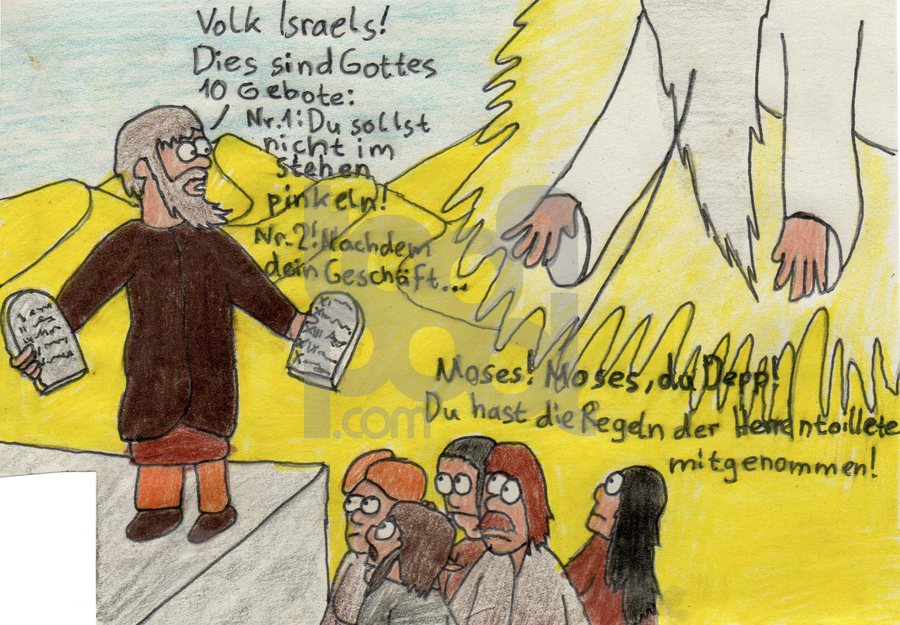 Volk Israels!
Dies sind Gottes
10 Gebote:
Nr.1: Du sollst
nicht im
stehen
pinkeln!
Nr.2: Nachdem
dein Geschäft...
Moses! Moses, du Depp!
Du hast die Regeln der Herrentoillete
mitgenommen!
toonpool
.com